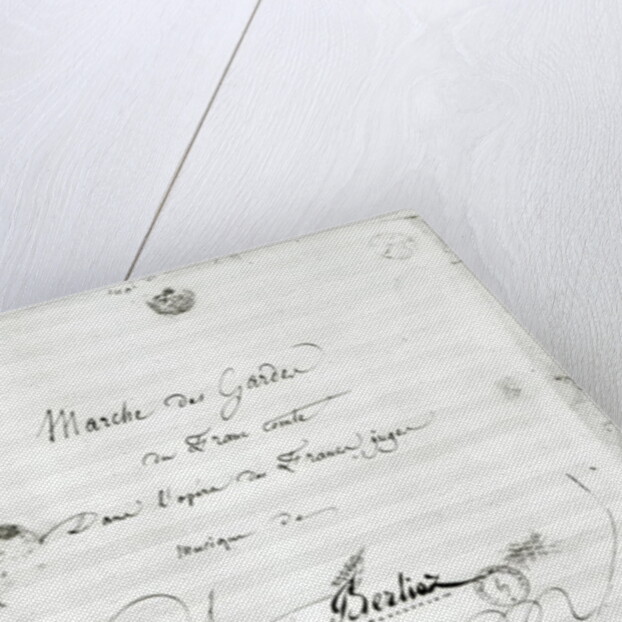 Marche des Gardes
du Franc comte
Dans l'opéra des Francs juges
Musique de
Berlioz